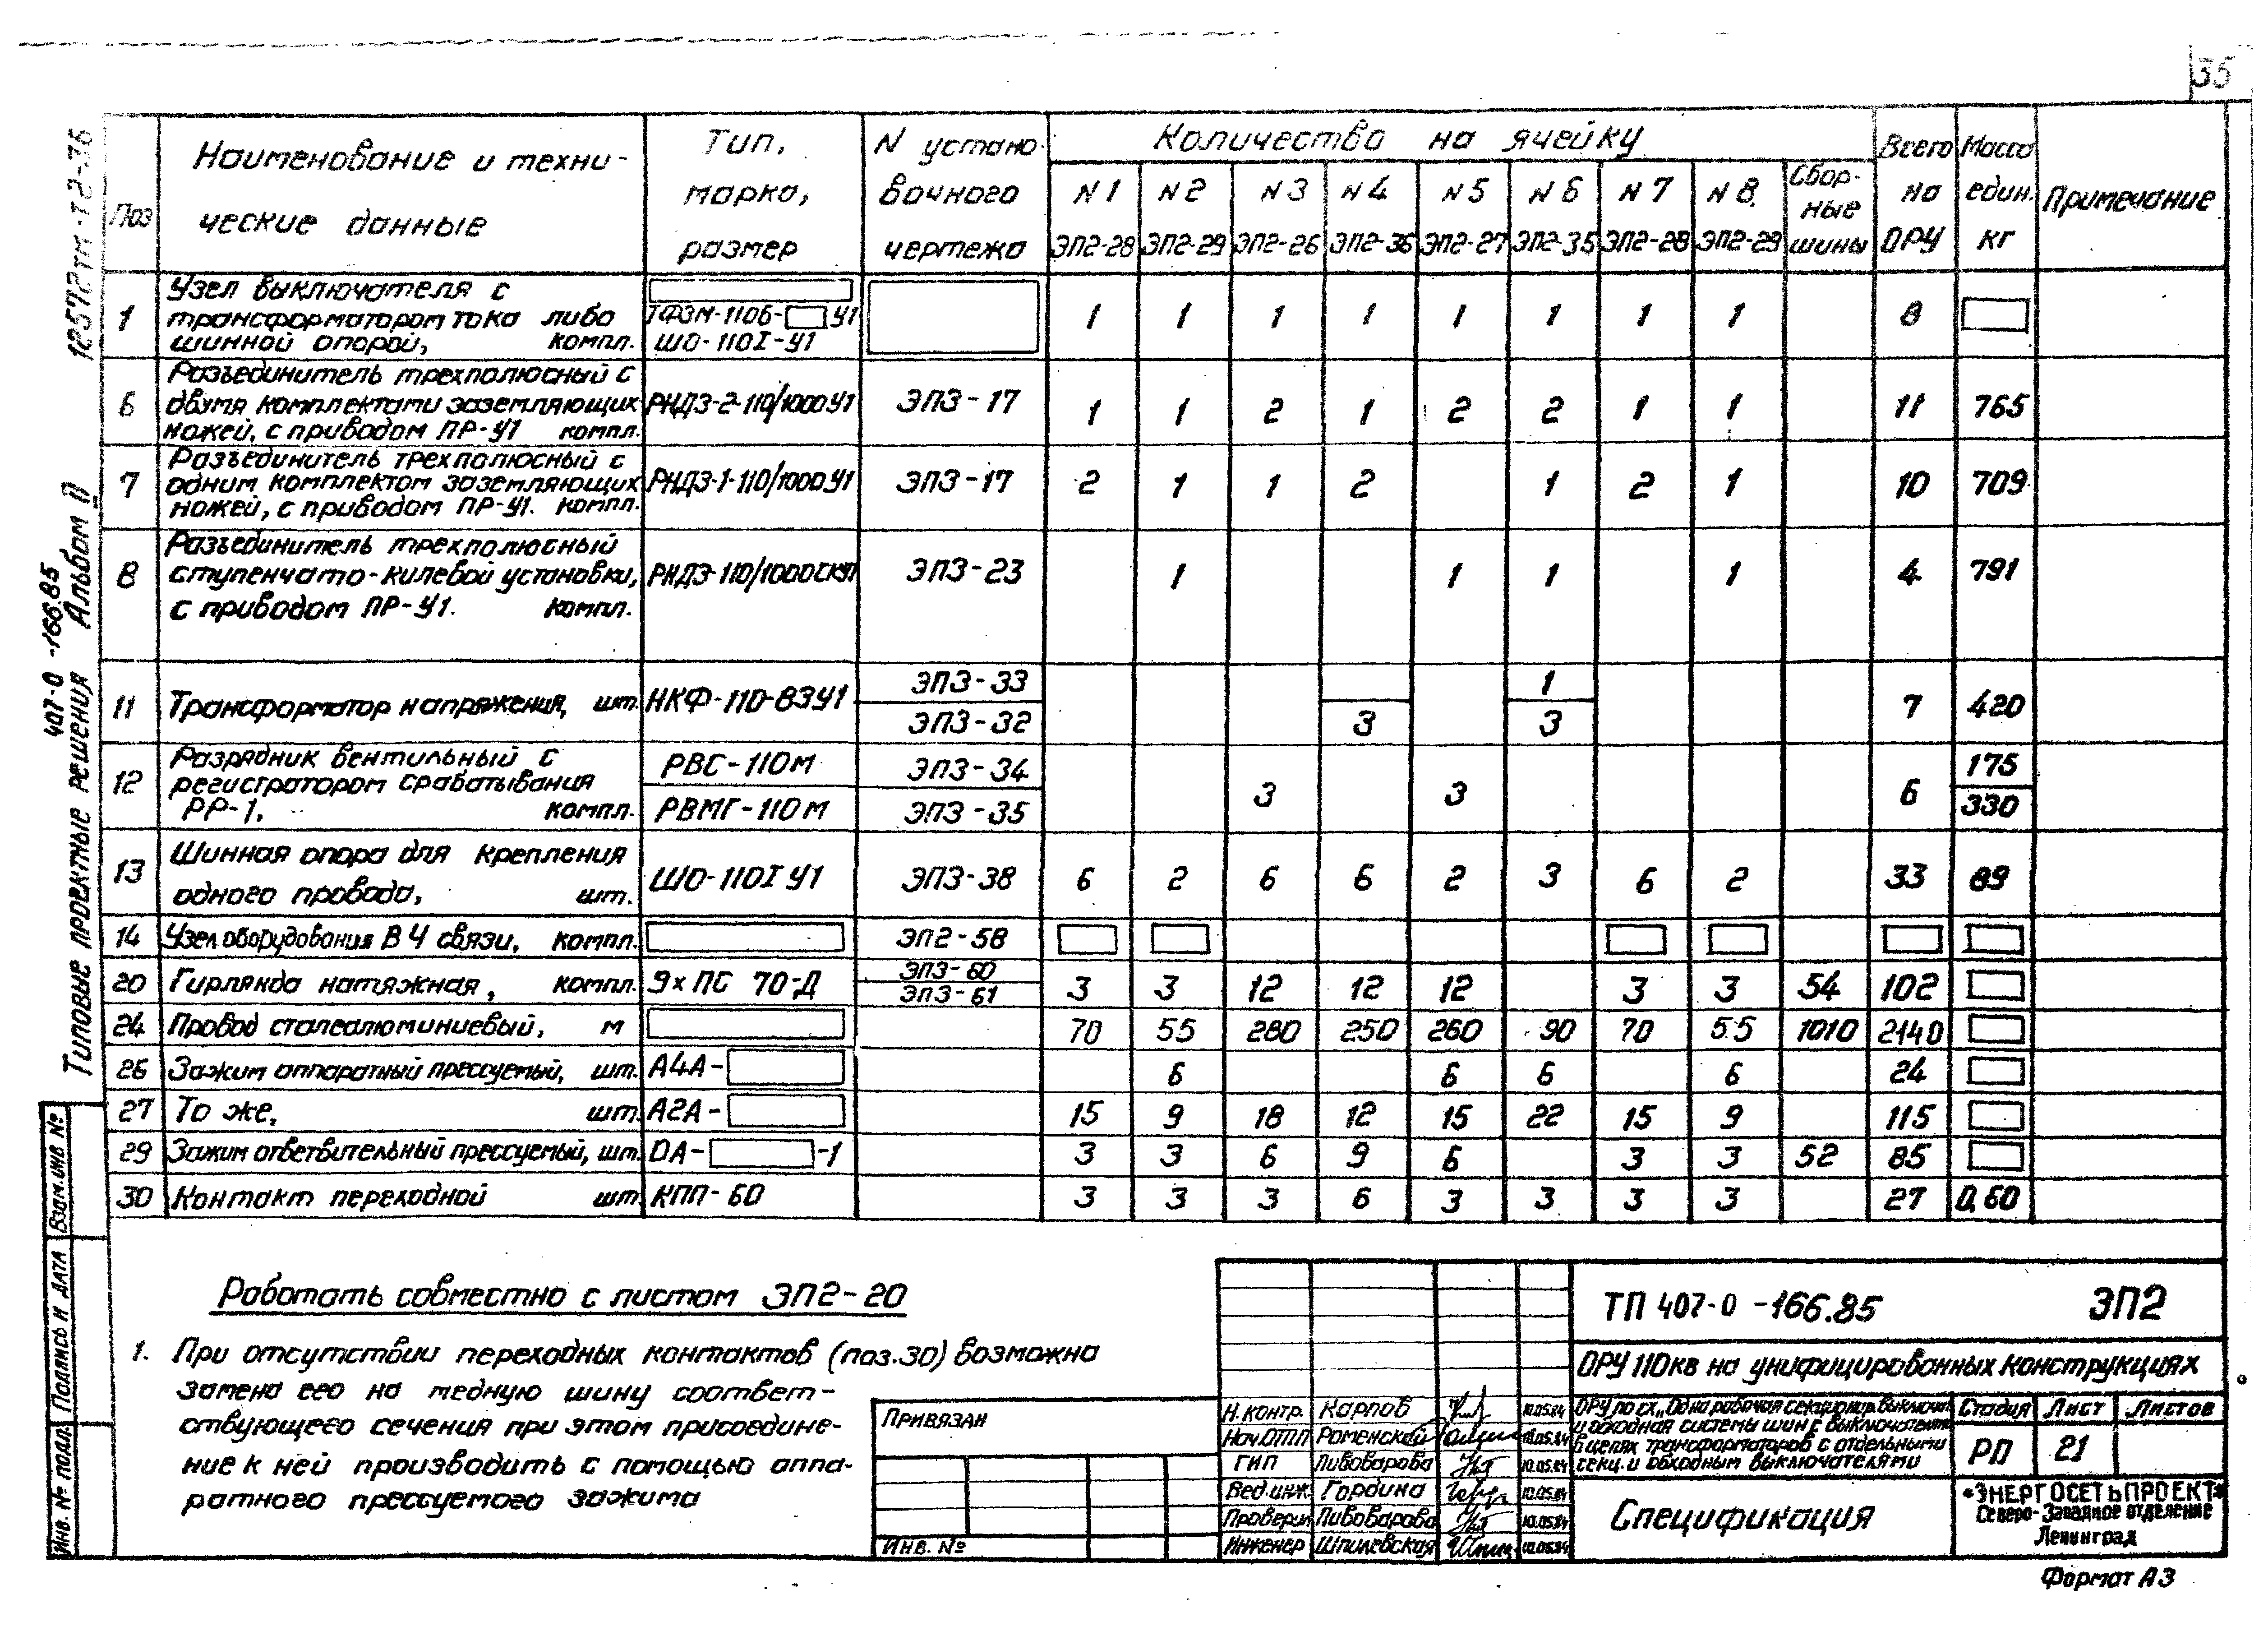 35
12572тм-т2-36
Типовые проектные решения 407-0-166.85 Альбом II
Поз
Наименование и техни-
ческие данные
Тип,
марка,
размер
N устано-
вочного
чертежа
Количество на ячейку
N1 N2 N3 N4 N5 N6 N7 N8 Сбор-
ные
шины
ЭП2-28 ЭП2-29 ЭП2-26 ЭП2-36 ЭП2-27 ЭП2-35 ЭП2-28 ЭП2-29
Всего
на
ОРУ
Масса
един.
кг
Примечание
1 Узел выключателя с
трансформатором тока либо ТФЗМ-110Б- У1 1 1 1 1 1 1 1 1 8
шинной опорой, компл. ШО-110I-У1
Разъединитель трехполюсный с
6 двумя комплектами заземляющих РНДЗ-2-110/1000У1 ЭП3-17 1 1 2 1 2 2 1 1 11 765
ножей, с приводом ПР-У1 компл.
Разъединитель трехполюсный с
7 одним комплектом заземляющих РНДЗ-1-110/1000У1 ЭП3-17 2 1 1 2 1 2 1 10 709
ножей, с приводом ПР-У1. компл.
Разъединитель трехполюсный
8 ступенчато-килевой установки, ЭП3-23 1 1 1 1 4 791
с приводом ПР-У1. компл.
11 Трансформатор напряжения, шт. НКФ-110-83У1 ЭП3-33 1 7 420
ЭП3-32 3 3
12 Разрядник вентильный с РВС-110м ЭП3-34 3 3 6 175
регистратором срабатывания
РР-1, компл. РВМГ-110м ЭП3-35 330
13 Шинная опора для крепления
одного провода, шт. ШО-110I У1 ЭП3-38 6 2 6 6 2 3 6 2 33 89
14 Узел оборудования ВЧ связи, компл. ЭП2-58
20 Гирлянда натяжная, компл. 9хПС 70-Д ЭП3-60 3 3 12 12 12 3 3 54 102
ЭП3-61
24 Провод сталеалюминиевый, м 70 55 280 250 260 90 70 55 1010 2140
26 Зажим аппаратный прессуемый, шт. А4А- 6 6 6 6 24
27 То же, шт. А2А- 15 9 18 12 15 22 15 9 115
29 Зажим ответвительный прессуемый, шт. ОА- -1 3 3 6 9 6 3 3 52 85
30 Контакт переходной шт КПП-60 3 3 3 6 3 3 3 3 27 0,60
Работать совместно с листом ЭП2-20
1. При отсутствии переходных контактов (поз.30) возможна
замена его на медную шину соответ-
ствующего сечения при этом присоедине-
ние к ней производить с помощью аппа-
ратного прессуемого зажима
Инв. № подл. Подпись и дата Взам.инв №
Привязан
Инв. №
Н.контр. Карпов 10.05.84
Нач.ОТП Роменский 10.05.84
ГИП Пивоварова 10.05.84
Вед.инж. Гордина 10.05.84
Проверил Пивоварова 10.05.84
Инженер Шпилевская 10.05.84
ТП 407-0-166.85 ЭП2
ОРУ 110кв на унифицированных конструкциях
ОРУ по сх. „Одна рабочая секционир. выключат.
и обходная системы шин с выключателями
в цепях трансформаторов с отдельными
секц. и обходным выключателями
Стадия Лист Листов
РП 21
Спецификация
"ЭНЕРГОСЕТЬПРОЕКТ"
Северо-Западное отделение
Ленинград
Формат А3